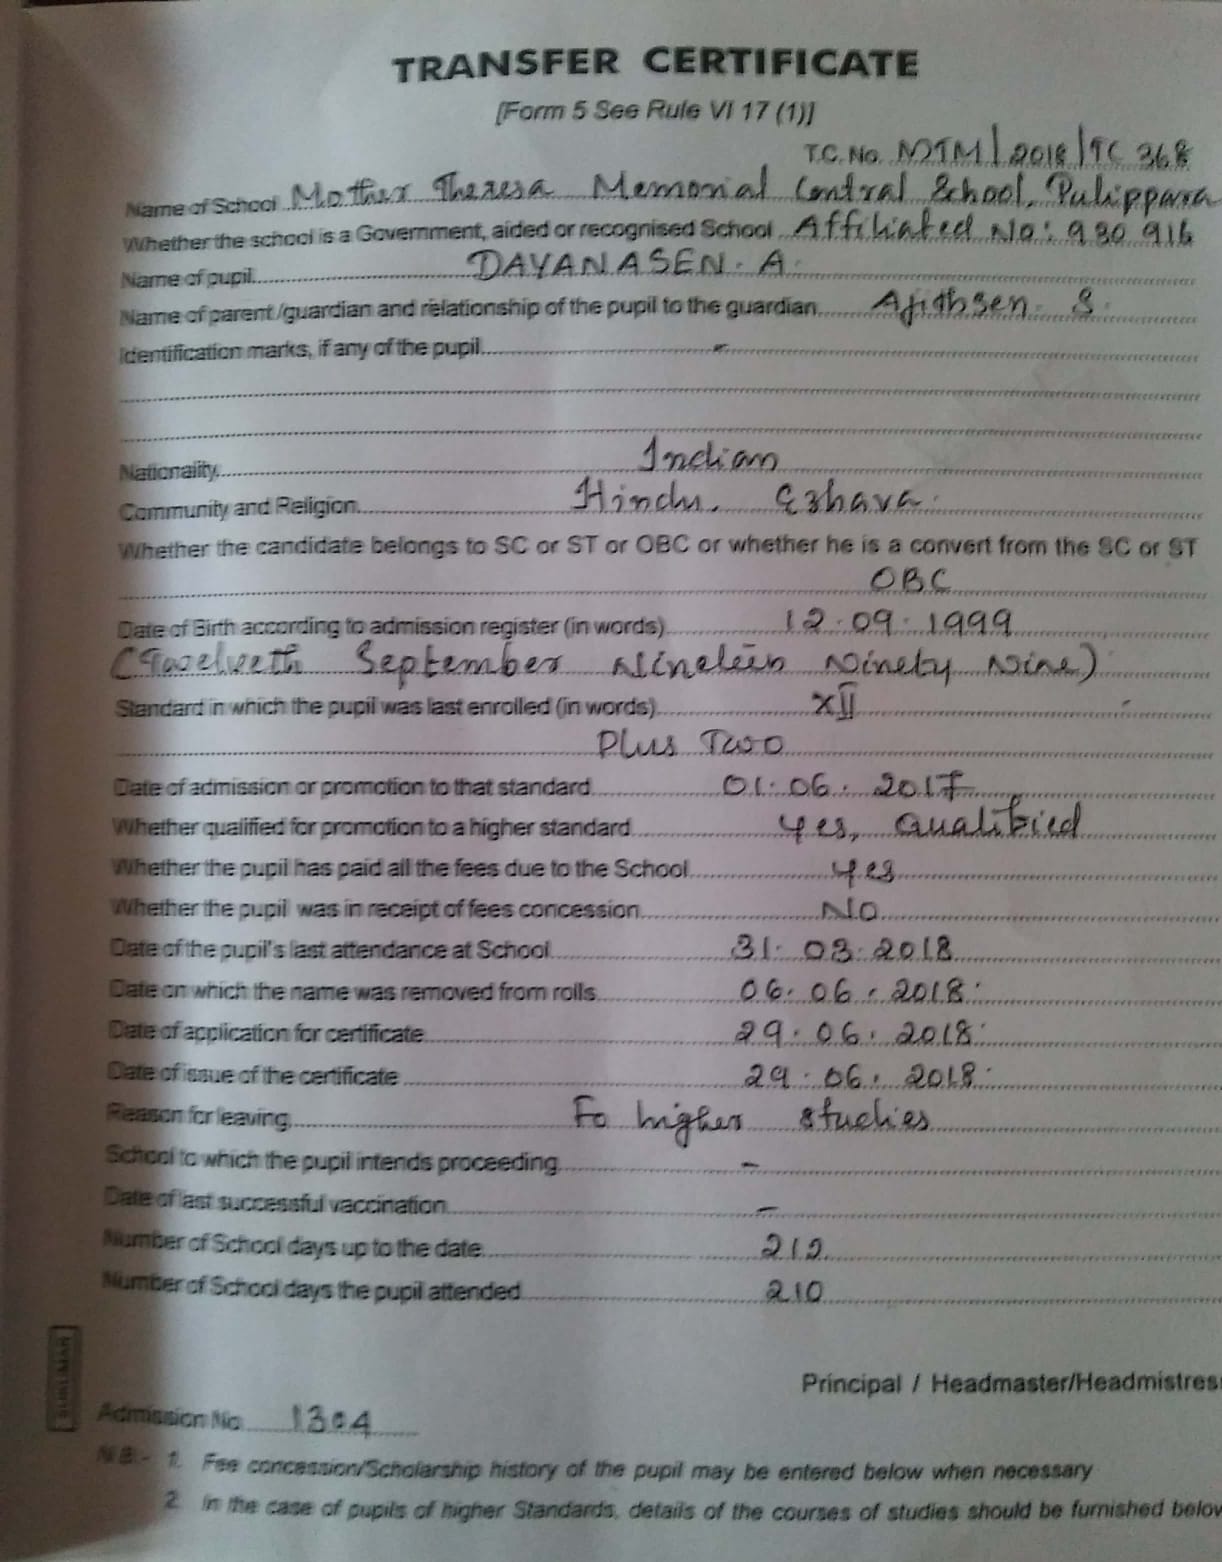 TRANSFER CERTIFICATE
[Form 5 See Rule VI 17 (1)]
T.C. No. MTM/2018/TC 368
Name of School Mother Theresa Memorial Central School, Pulippara
Whether the school is a Government, aided or recognised School Affiliated No: 930916
Name of pupil DAYANASEN. A.
Name of parent/guardian and relationship of the pupil to the guardian Ajithsen. S.
Identification marks, if any of the pupil -
Nationality Indian
Community and Religion Hindu. Ezhava.
Whether the candidate belongs to SC or ST or OBC or whether he is a convert from the SC or ST
OBC
Date of Birth according to admission register (in words) 12.09.1999
(Twelveth September Nineteen Ninety Nine)
Standard in which the pupil was last enrolled (in words) XII
Plus Two
Date of admission or promotion to that standard 01.06.2017
Whether qualified for promotion to a higher standard Yes, Qualified
Whether the pupil has paid all the fees due to the School Yes
Whether the pupil was in receipt of fees concession No
Date of the pupil's last attendance at School 31.03.2018
Date on which the name was removed from rolls 06.06.2018
Date of application for certificate 29.06.2018
Date of issue of the certificate 29.06.2018
Reason for leaving Fo higher studies
School to which the pupil intends proceeding -
Date of last successful vaccination -
Number of School days up to the date 212
Number of School days the pupil attended 210
Principal / Headmaster/Headmistres
Admission No. 1304
N.B:- 1. Fee concession/Scholarship history of the pupil may be entered below when necessary
2. In the case of pupils of higher Standards, details of the courses of studies should be furnished below